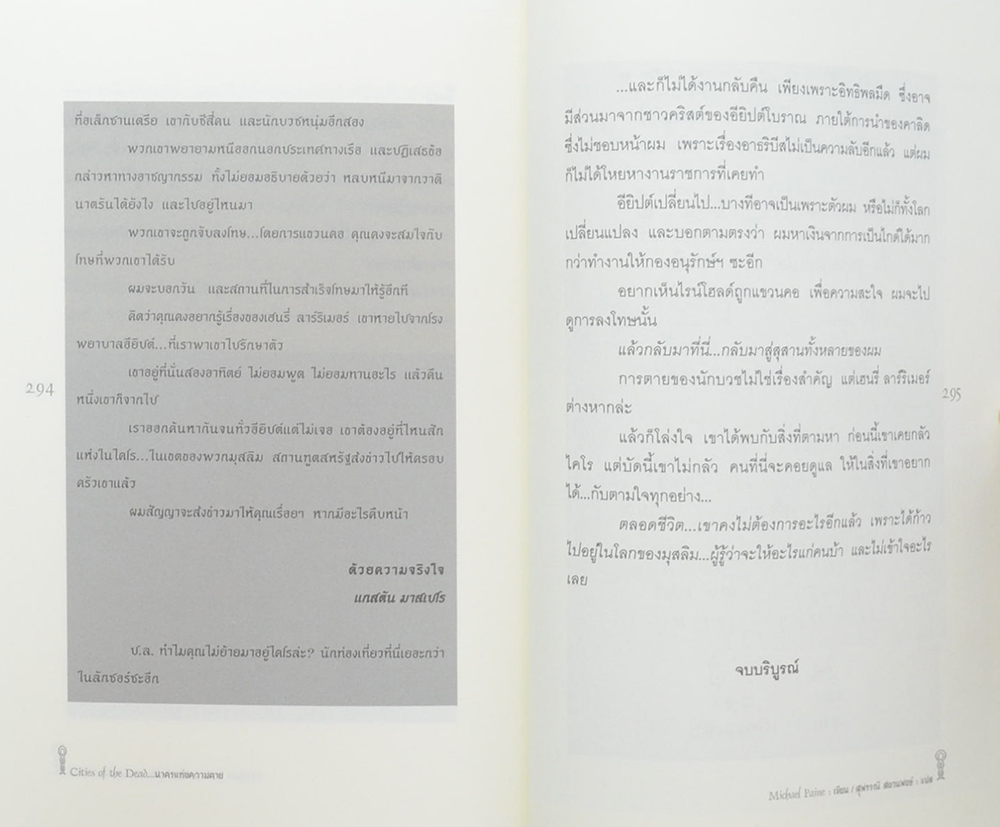 ที่อเล็กซานเดรีย เขากับซีสี่คน และนักบวชหนุ่มอีกสอง
พวกเขาพยายามหนีออกนอกประเทศทางเรือ และปฏิเสธข้อ
กล่าวหาทางอาชญากรรม ทั้งไม่ยอมอธิบายด้วยว่า หลบหนีมาจากวาดิ
นาตรันได้ยังไง และไปอยู่ไหนมา
พวกเขาจะถูกจับลงโทษ...โดยการแขวนคอ คุณคงจะสมใจกับ
โทษที่พวกเขาได้รับ
ผมจะบอกวัน และสถานที่ในการสำเร็จโทษมาให้รู้อีกที
คิดว่าคุณคงอยากรู้เรื่องของเฮนรี่ ลาร์ริเมอร์ เขาหายไปจากโรง
พยาบาลอียิปต์...ที่เราพาเขาไปรักษาตัว
เขาอยู่ที่นั่นสองอาทิตย์ ไม่ยอมพูด ไม่ยอมทานอะไร แล้วคืน
หนึ่งเขาก็จากไป
เราออกค้นหากันจนทั่วอียิปต์แต่ไม่เจอ เขาต้องอยู่ที่ไหนสัก
แห่งในไคโร...ในเขตของพวกมุสลิม สถานทูตสหรัฐส่งข่าวไปให้ครอบ
ครัวเขาแล้ว
ผมสัญญาจะส่งข่าวมาให้คุณเรื่อยๆ หากมีอะไรคืบหน้า
ด้วยความจริงใจ
แกสตัน มาสเปโร
ป.ล. ทำไมคุณไม่ย้ายมาอยู่ไคโรล่ะ? นักท่องเที่ยวที่นี่เยอะกว่า
ในลักซอร์ซะอีก
294
Cities of the Dead...นาครแห่งความตาย
...และก็ไม่ได้งานกลับคืน เพียงเพราะอิทธิพลมืด ซึ่งอาจ
มีส่วนมาจากชาวคริสต์ของอียิปต์โบราณ ภายใต้การนำของคาลิด
ซึ่งไม่ชอบหน้าผม เพราะเรื่องอาธริบีสไม่เป็นความลับอีกแล้ว แต่ผม
ก็ไม่ได้โหยหางานราชการที่เคยทำ
อียิปต์เปลี่ยนไป...บางทีอาจเป็นเพราะตัวผม หรือไม่ก็ทั้งโลก
เปลี่ยนแปลง และบอกตามตรงว่า ผมหาเงินจากการเป็นไกด์ได้มาก
กว่าทำงานให้กองอนุรักษ์ฯ ซะอีก
อยากเห็นไรน์โฮลด์ถูกแขวนคอ เพื่อความสะใจ ผมจะไป
ดูการลงโทษนั้น
แล้วกลับมาที่นี่...กลับมาสู่สุสานทั้งหลายของผม
การตายของนักบวชไม่ใช่เรื่องสำคัญ แต่เฮนรี่ ลาร์ริเมอร์
ต่างหากล่ะ
แล้วก็โล่งใจ เขาได้พบกับสิ่งที่ตามหา ก่อนนี้เขาเคยกลัว
ไคโร แต่บัดนี้เขาไม่กลัว คนที่นี่จะคอยดูแล ให้ในสิ่งที่เขาอยาก
ได้...กับตามใจทุกอย่าง...
ตลอดชีวิต...เขาคงไม่ต้องการอะไรอีกแล้ว เพราะได้ก้าว
ไปอยู่ในโลกของมุสลิม...ผู้รู้ว่าจะให้อะไรแก่คนบ้า และไม่เข้าใจอะไร
เลย
จบบริบูรณ์
295
Michael Paine : เขียน / สุพรรณี : แปล